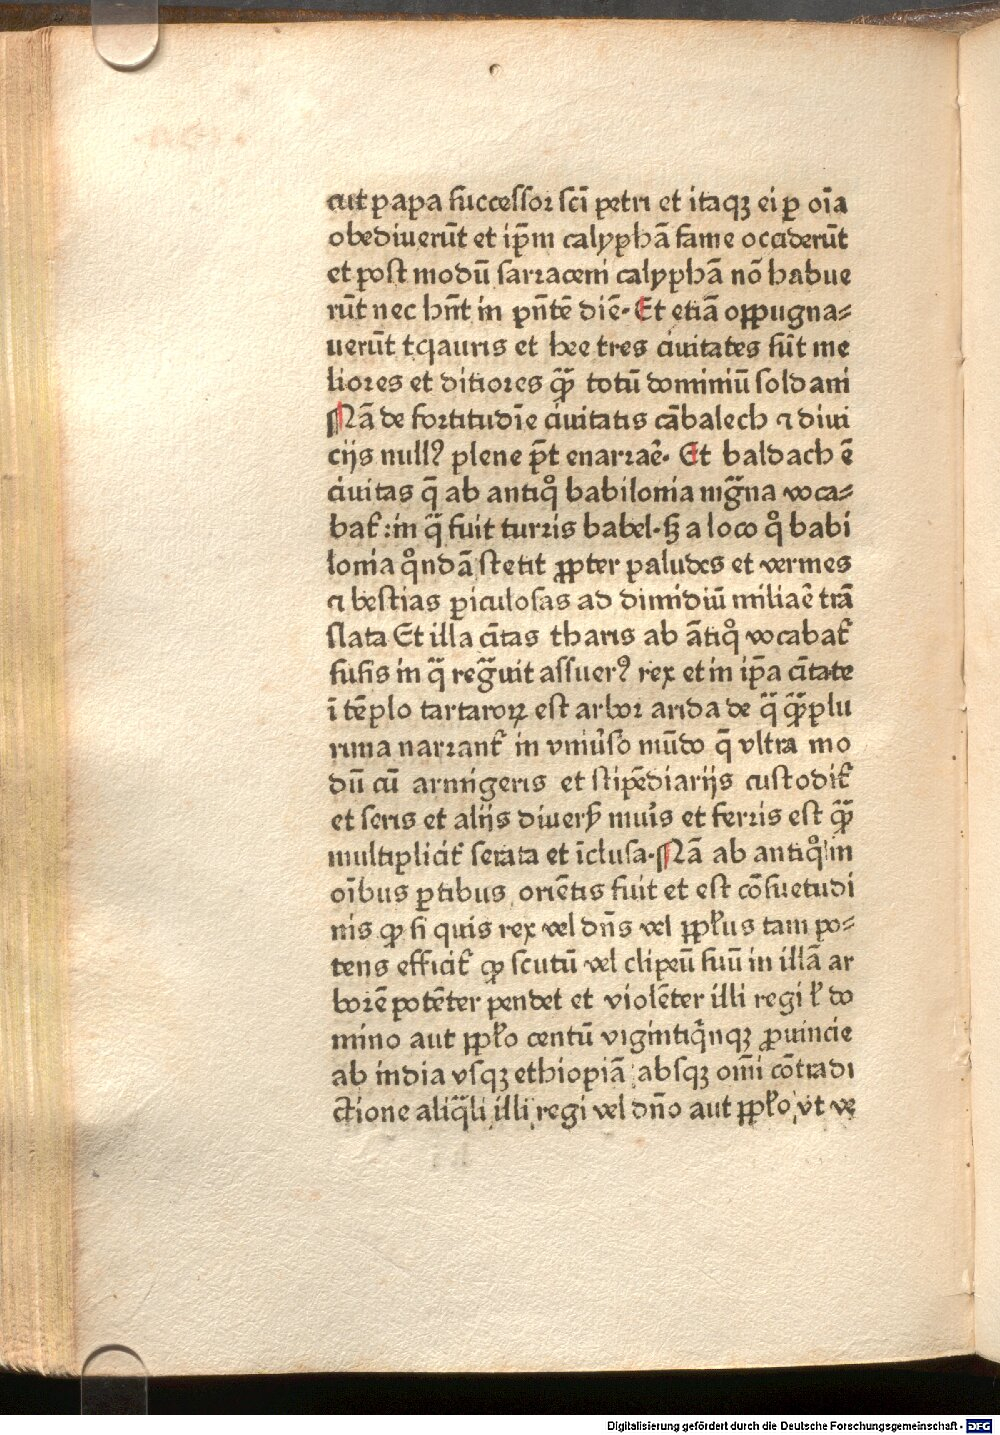 cut papa successor scī petri et itaqꝫ ei ꝑ oīa
obediuerūt et ip̄m calyphā fame occiderūt
et post modū sarraceni calyphā nō habue
rūt nec hn̄t in pn̄tē diē. Et etiā oppugna⸗
uerūt tꝭauris et hee tres ciuitates sūt me
liores et ditiores q̄ꝫ totū dominiū soldani
Nā de fortitudīe ciuitatis cābalech ⁊ diui
cijs nullꝰ plene pōt enarraē. Et baldach ē
ciuitas q̄ ab antiqͦ babilonia mgͣna voca⸗
bat̄ : in qͣ fuit turris babel. sꝫ a loco qͦ babi
lonia qͦndā stetit ꝓpter paludes et vermes
⁊ bestias ꝑiculosas ad dimidiū miliaē trā
slata Et illa cītas tharis ab ātiqͦ vocabat̄
susis in qͣ regͣuit assuerꝰ rex et in ip̄a cītate
ī tēplo tartaroꝝ est arbor arida de qͣ qͣꝫplu
rima narrant̄ in vniuͥso mūdo q̄ vltra mo
dū cū armigeris et stipēdiarijs custodit̄
et seris et alijs diuersꝭ muͥs et ferris est qͣꝫ
multiplicit̄ serata et īclusa. Nā ab antiqͦ in
oībus ꝑtibus oriētis fuit et est cōsuetudi
nis ꝙ si quis rex vel dn̄s vel ppl̄us tam po⸗
tens efficit̄ ꝙ scutū vel clipeū suū in illā ar
borē potēter pendet et violēter illi regi l̄ do
mino aut ppl̄o centū vigintiqͥnqꝫ ꝓuincie
ab india vsqꝫ ethiopiā absqꝫ om̄i cōtradi
ctione aliqͣli illi regi vel dn̄o aut ppl̄o vt ve
Digitalisierung gefördert durch die Deutsche Forschungsgemeinschaft - DFG